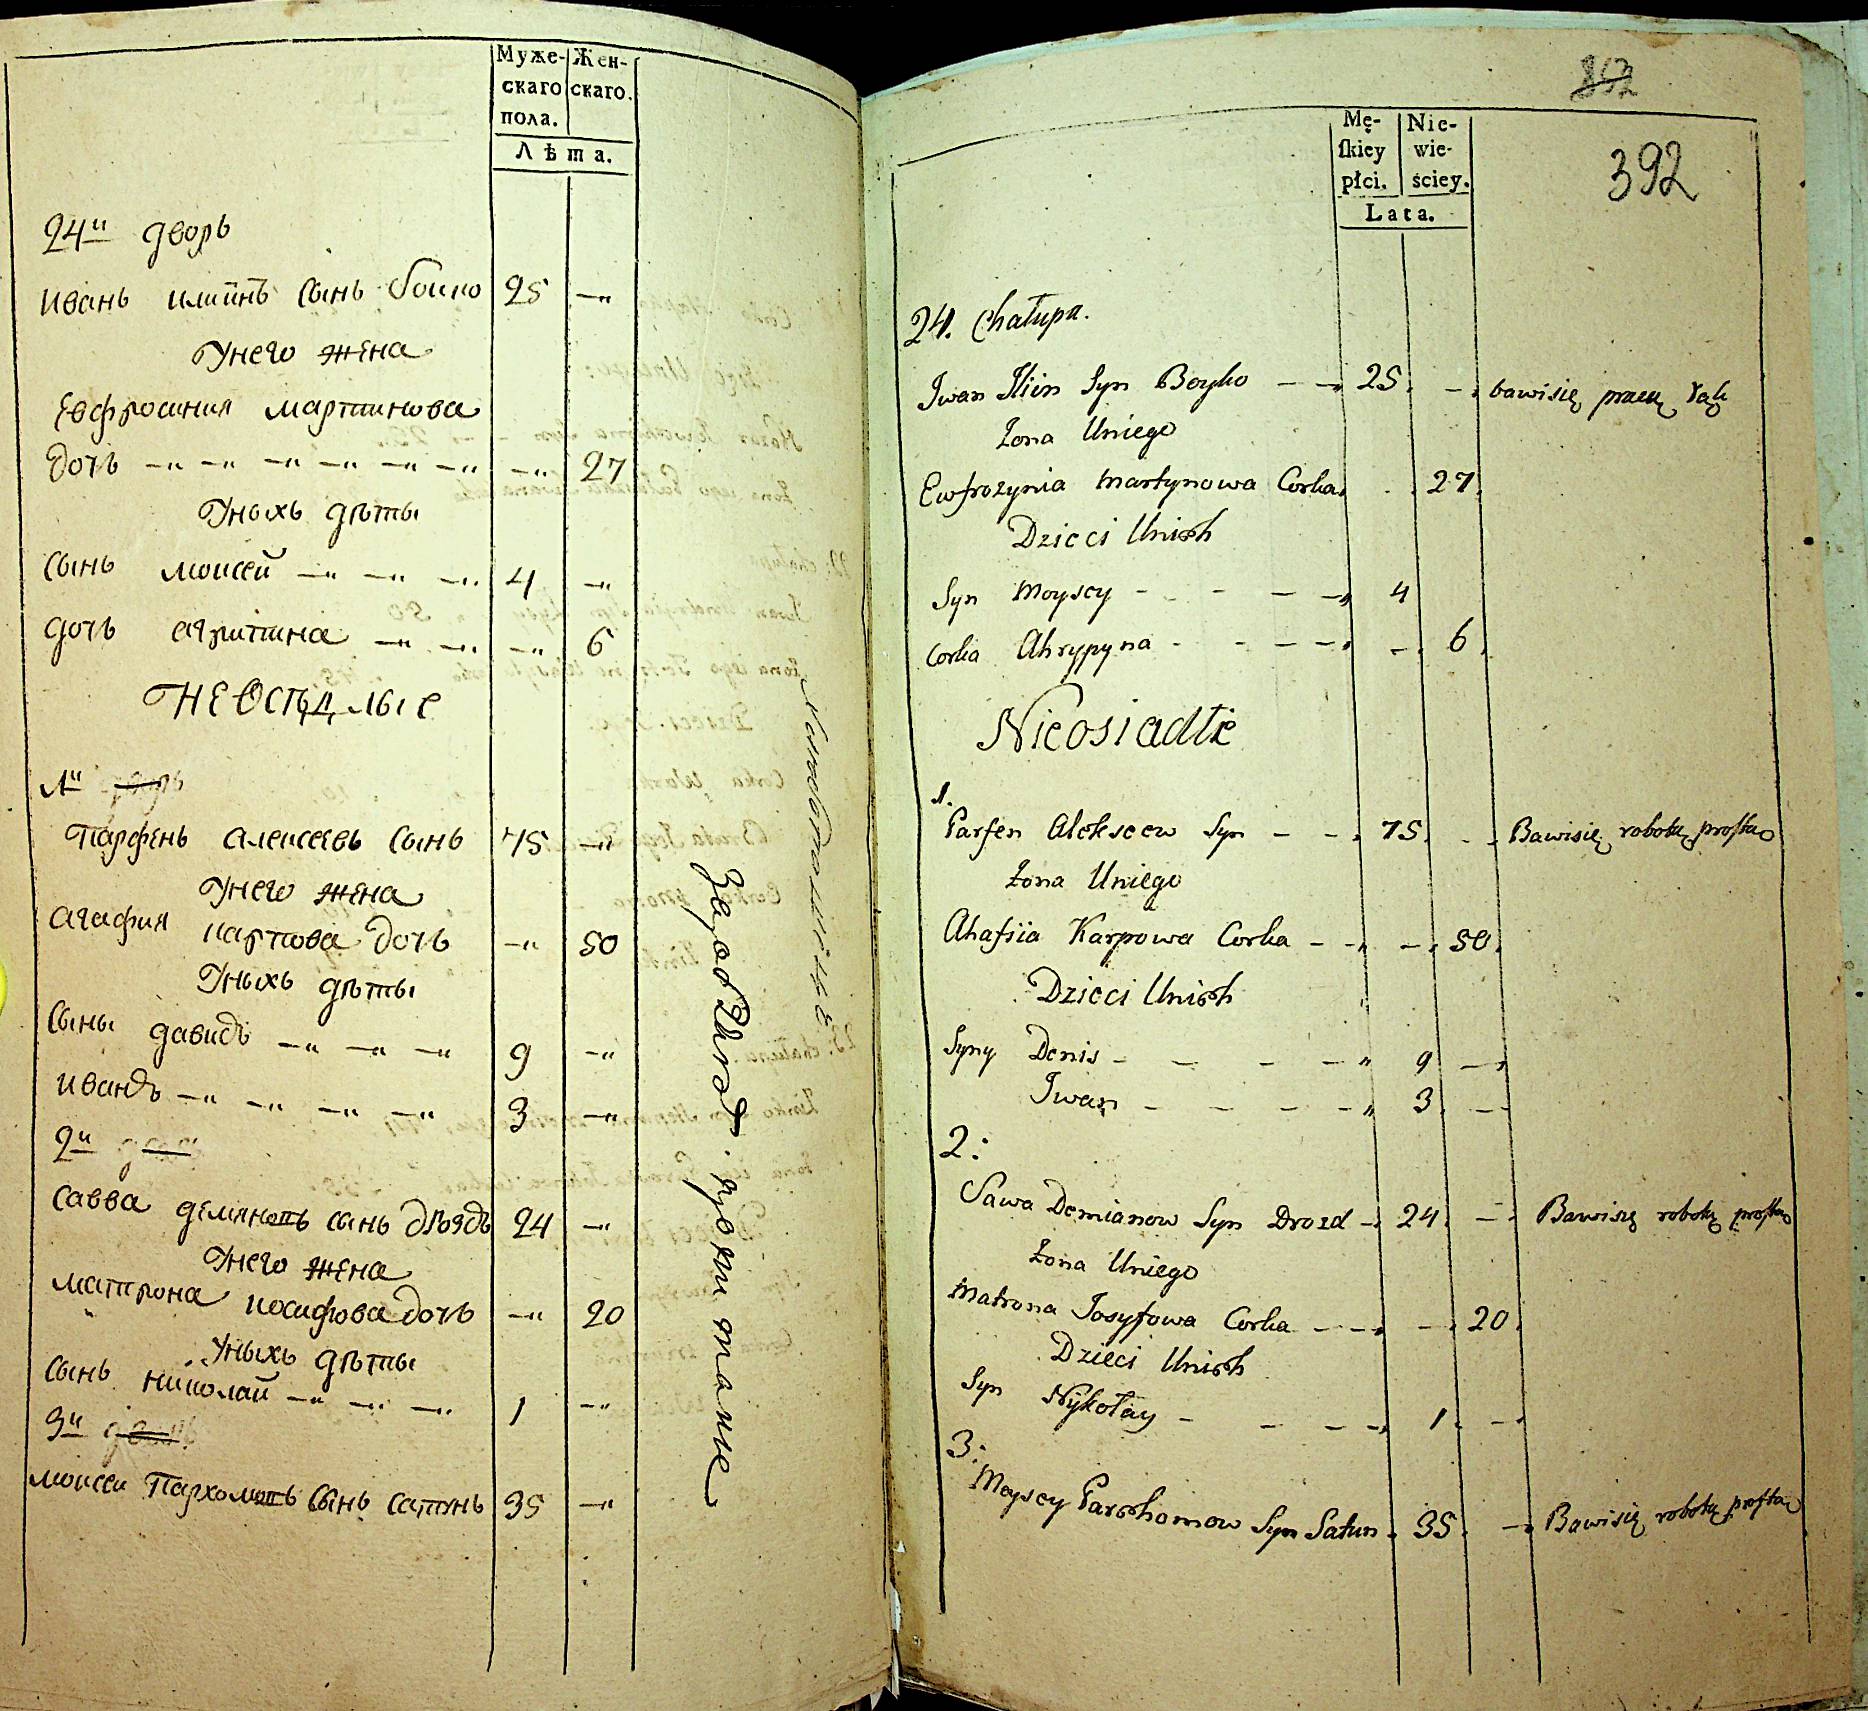 Муже-
скаго
пола.
Жен-
скаго.
Лѣта.
24й дворъ
Иванъ илиинъ сынъ бойко 25 —„
Унего жена
Евфросиния мартинова
дочь —„ —„ —„ —„ —„ —„ —„ 27
Уныхъ дѣты
сынъ моисей —„ —„ —„ 4 —„
дочь агрипина —„ —„ —„ 6
НЕОСѢДЛЫЕ
1й дворъ
Парфенъ алексеевъ сынъ 75 —„
Унего жена
агафия карпова дочь —„ 50
Уныхъ дѣты
Сыны давидъ —„ —„ —„ 9 —„
иванъ —„ —„ —„ —„ 3 —„
2й
савва демяновъ сынъ дроздъ 24 —„
Унего жена
матрона иосифова дочь —„ 20
Уныхъ дѣты
сынъ николай —„ —„ —„ 1 —„
3й
моисеи Пархомовъ сынъ сатунъ 35 —„
392
Mę-
ſkiey
płci.
Nie-
wie-
ściey.
Lata.
24. Chałupa.
Iwan Ilin Syn Boyko — —„ 25. —. bawisię pracą rąk
Żona Uniego
Ewfrozynia Martynowa Corka. . . 27.
Dzieci Unich
Syn Moysey - - - — —„ 4
Corka Ahrypyna - - - — — —. 6.
Nieosiadłe
1.
Parfen Alekseew Syn — —. 75. - -. Bawisię robotą prostą
Żona Uniego
Ahafiia Karpowa Corka — —„ —. 50.
Dzieci Unich
Syny Denis — — — —„ 9 —„
Iwan — — — —„ 3. — —
2:
Sawa Demianow Syn Drozd —. 24. — -. Bawisię robotą prostą
Żona Uniego
Matrona Josyfowa Corka — — —„ —. 20.
Dzieci Unich
Syn Nykołay — — — —„ 1. —.
3:
Moysey Parchomow Syn Satun. 35. —. Bawisię robotą prostą